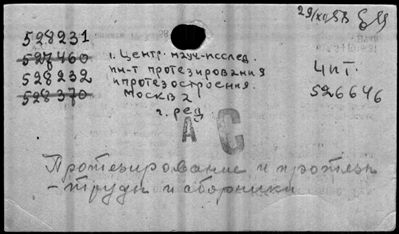 29/XI 58
528231
527460
528232
528370
1. Центр. науч-исслед.
ин-т протезирования
и протезостроения.
Москва 2
г. ред
4 пт.
526646
А С
Протезирование и протезы
- труды и сборники